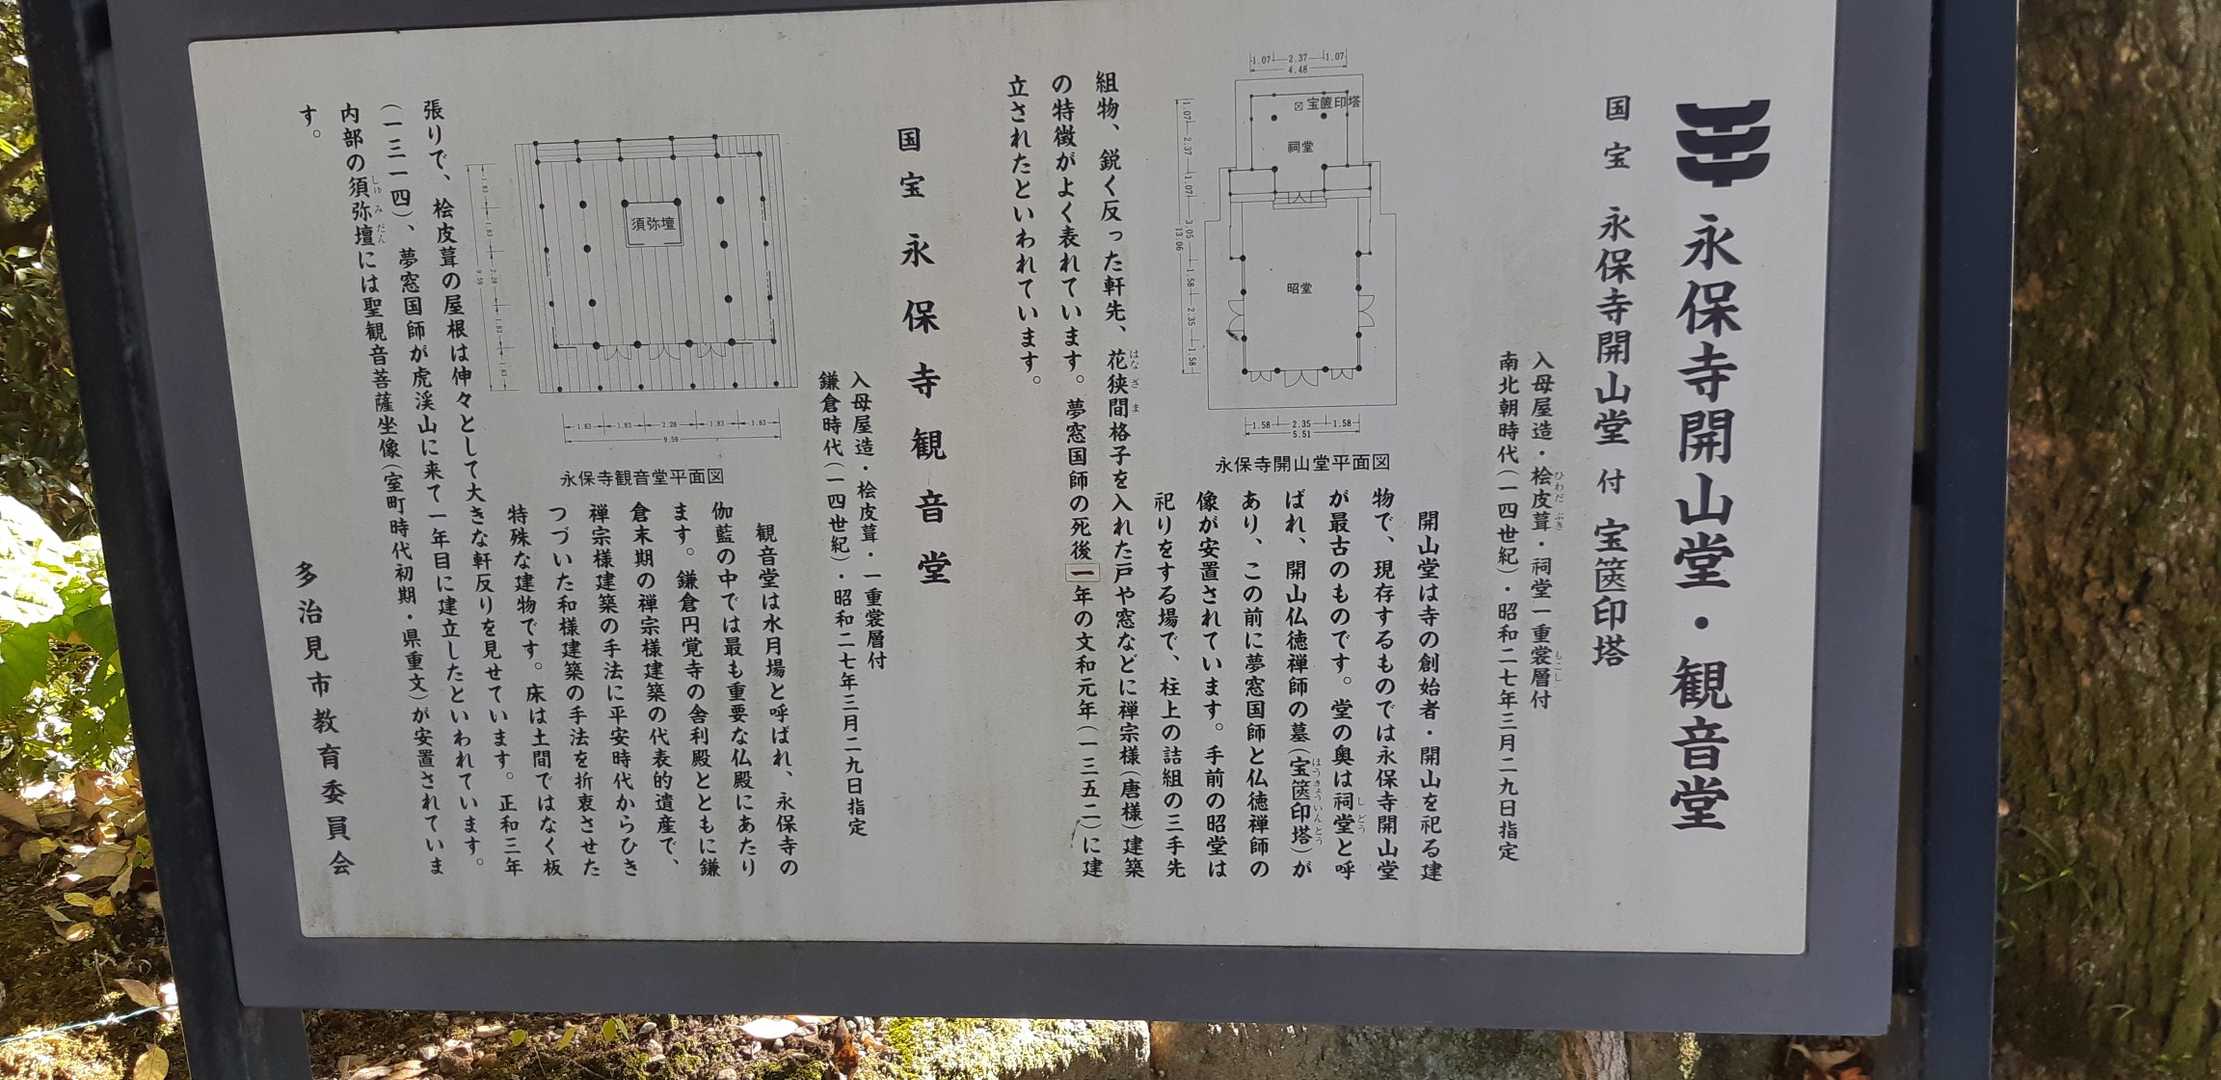 永保寺開山堂・観音堂
国宝 永保寺開山堂 付 宝篋印塔
入母屋造・桧皮葺・祠堂一重裳層付
ひわだぶき
もこし
南北朝時代(一四世紀)・昭和二七年三月二九日指定
1.07 2.37 1.07
4.48
宝篋印塔
祠堂
昭堂
1.07 2.37 1.07 3.05 1.58 2.35 1.58
13.06
1.58 2.35 1.58
5.51
永保寺開山堂平面図
開山堂は寺の創始者・開山を祀る建
物で、現存するものでは永保寺開山堂
が最古のものです。堂の奥は祠堂と呼
しどう
ばれ、開山仏徳禅師の墓(宝篋印塔)が
ほうきょういんとう
あり、この前に夢窓国師と仏徳禅師の
像が安置されています。手前の昭堂は
祀りをする場で、柱上の詰組の三手先
組物、鋭く反った軒先、花狭間格子を入れた戸や窓などに禅宗様(唐様)建築
はなざま
の特徴がよく表れています。夢窓国師の死後一年の文和元年(一三五二)に建
立されたといわれています。
国宝 永保寺観音堂
入母屋造・桧皮葺・一重裳層付
鎌倉時代(一四世紀)・昭和二七年三月二九日指定
須弥壇
1.83 1.83 2.28 1.83 1.83
9.59
永保寺観音堂平面図
観音堂は水月場と呼ばれ、永保寺の
伽藍の中では最も重要な仏殿にあたり
ます。鎌倉円覚寺の舎利殿とともに鎌
倉末期の禅宗様建築の代表的遺産で、
禅宗様建築の手法に平安時代からひき
つづいた和様建築の手法を折衷させた
特殊な建物です。床は土間ではなく板
張りで、桧皮葺の屋根は伸々として大きな軒反りを見せています。正和三年
(一三一四)、夢窓国師が虎渓山に来て一年目に建立したといわれています。
内部の須弥壇には聖観音菩薩坐像(室町時代初期・県重文)が安置されていま
しゅみだん
す。
多治見市教育委員会